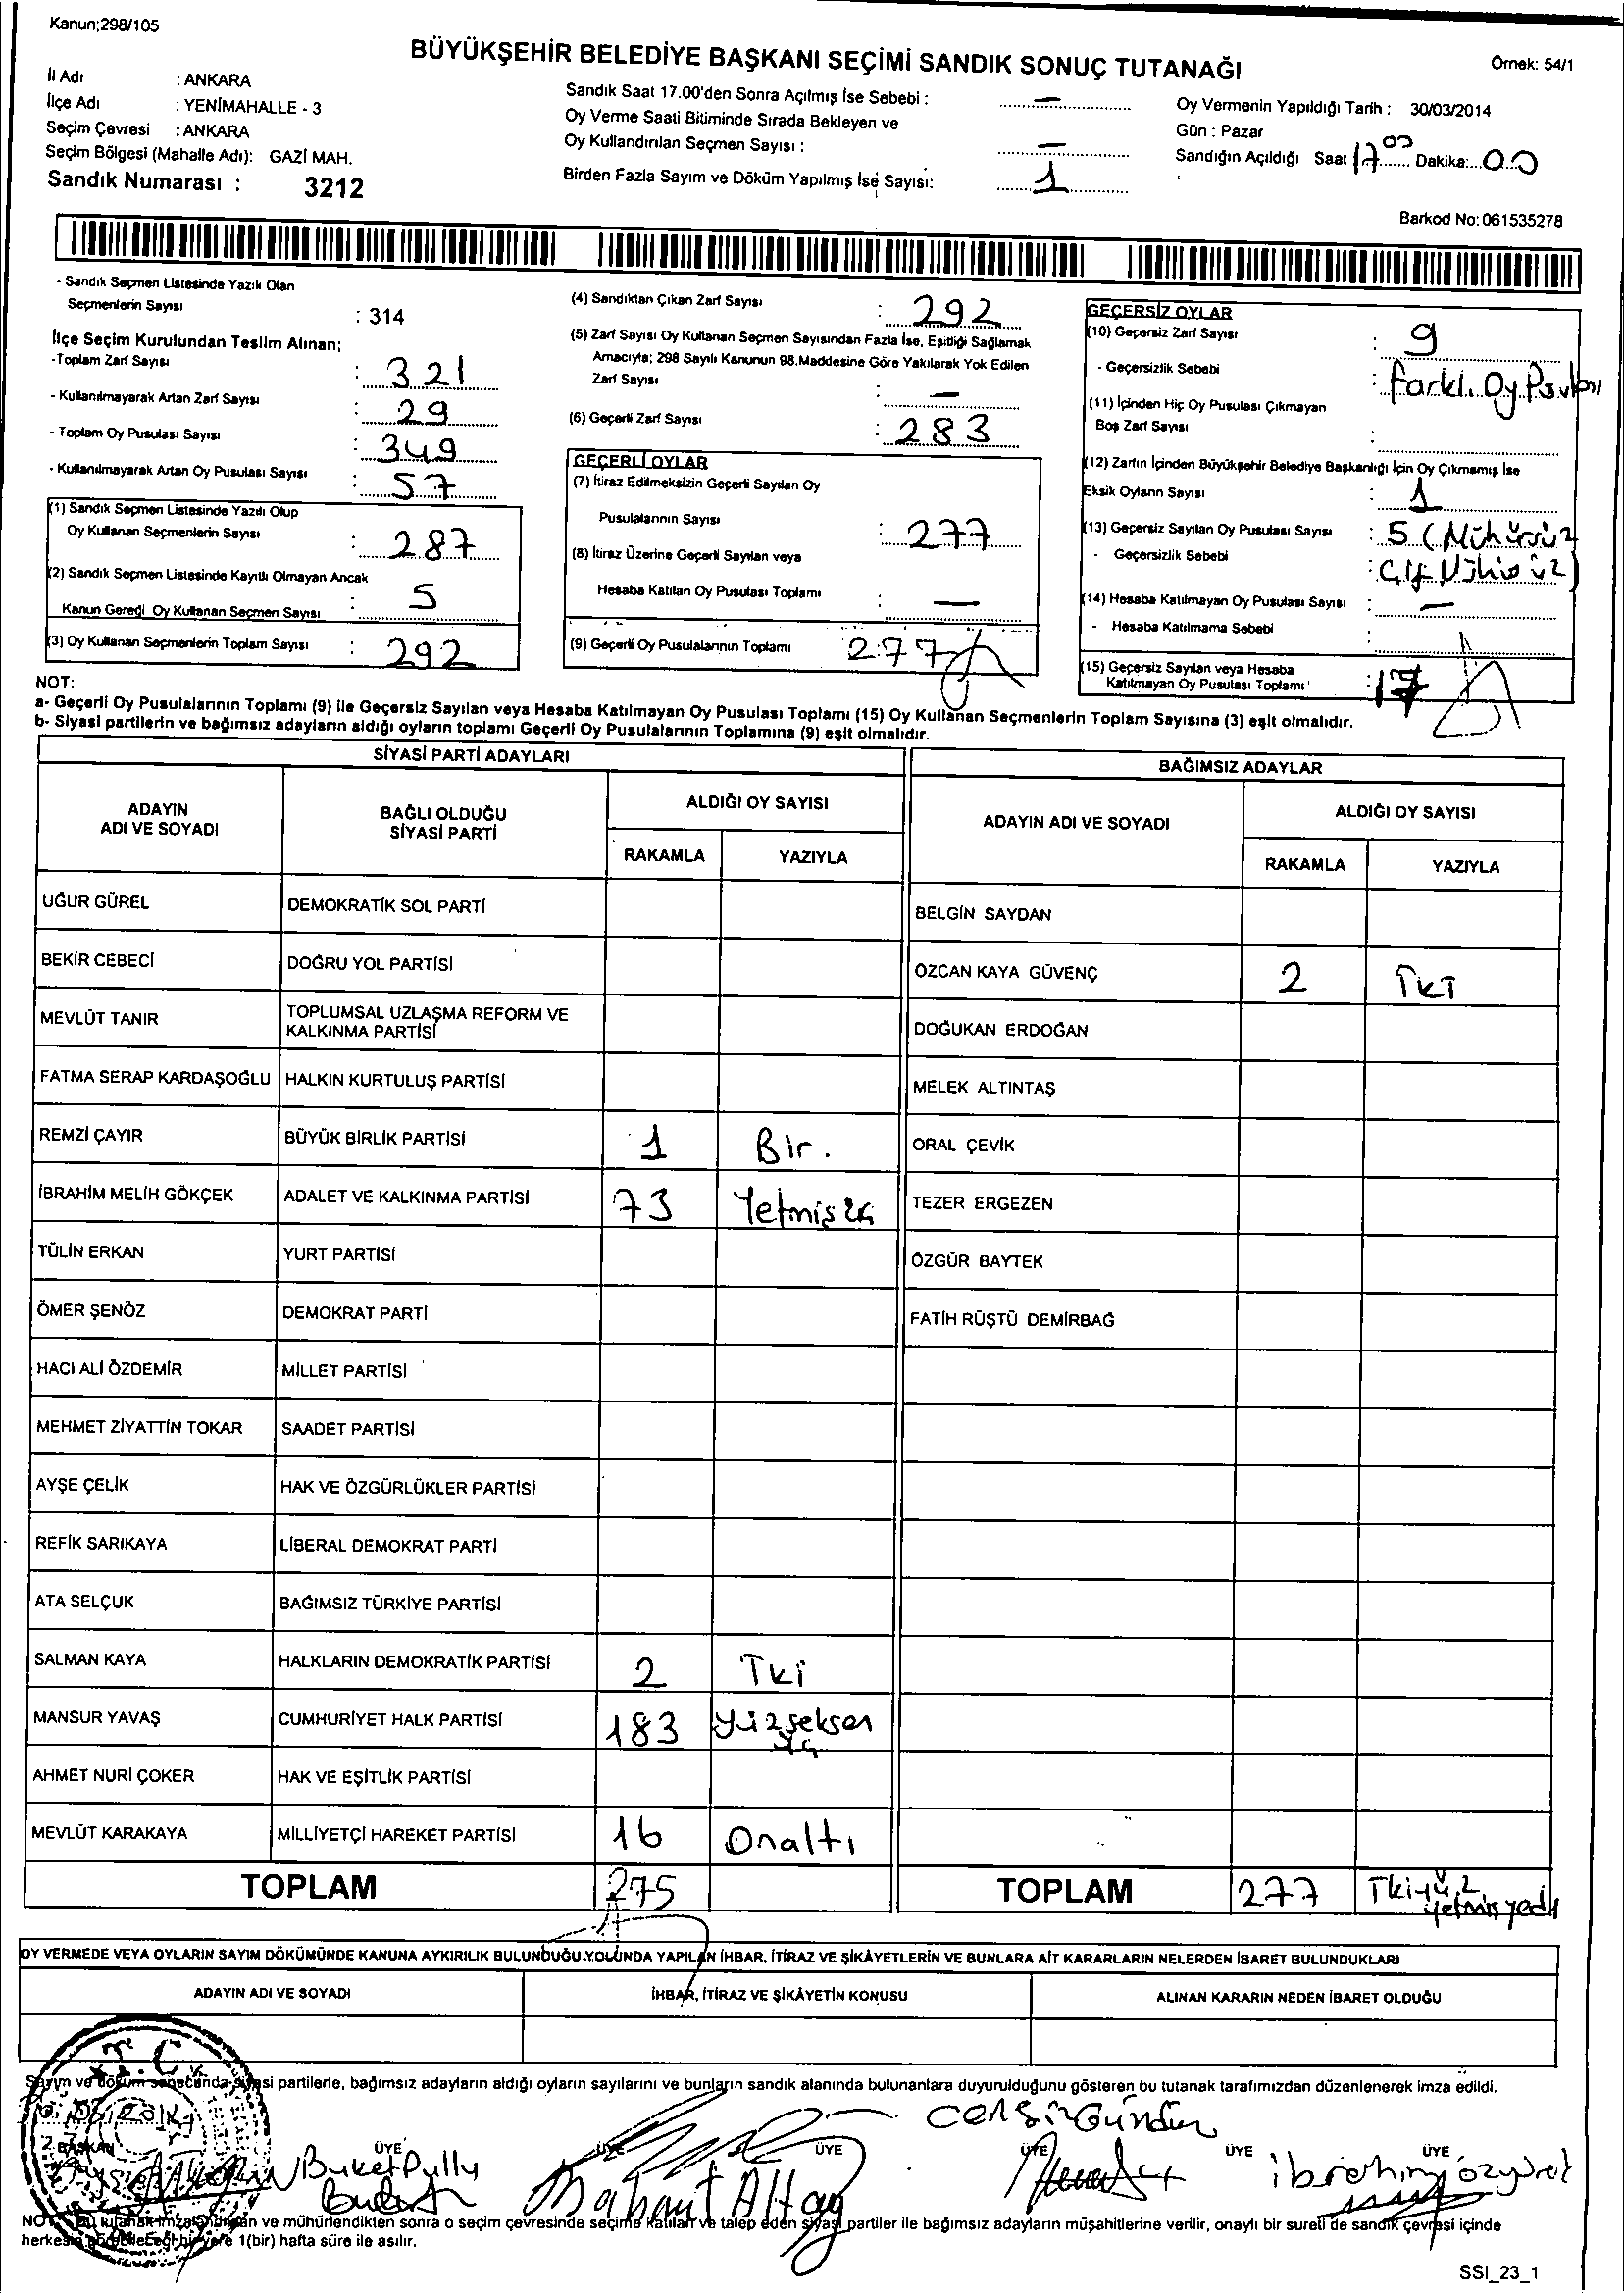 Kanun;298/105
BÜYÜKŞEHİR BELEDİYE BAŞKANI SEÇİMİ SANDIK SONUÇ TUTANAĞI
Örnek: 54/1
İl Adı : ANKARA
İlçe Adı : YENİMAHALLE - 3
Seçim Çevresi : ANKARA
Seçim Bölgesi (Mahalle Adı): GAZİ MAH.
Sandık Numarası : 3212
Sandık Saat 17.00'den Sonra Açılmış İse Sebebi : —
Oy Verme Saati Bitiminde Sırada Bekleyen ve
Oy Kullandırılan Seçmen Sayısı : —
Birden Fazla Sayım ve Döküm Yapılmış İse Sayısı: 1
Oy Vermenin Yapıldığı Tarih : 30/03/2014
Gün : Pazar
Sandığın Açıldığı Saat 17 00 Dakika:...00
Barkod No: 061535278
- Sandık Seçmen Listesinde Yazılı Olan
Seçmenlerin Sayısı : 314
İlçe Seçim Kurulundan Teslim Alınan;
-Toplam Zarf Sayısı : 321
- Kullanılmayarak Artan Zarf Sayısı : 29
- Toplam Oy Pusulası Sayısı : 349
- Kullanılmayarak Artan Oy Pusulası Sayısı : 57
(1) Sandık Seçmen Listesinde Yazılı Olup
Oy Kullanan Seçmenlerin Sayısı : 287
(2) Sandık Seçmen Listesinde Kayıtlı Olmayan Ancak
Kanun Gereği Oy Kullanan Seçmen Sayısı : 5
(3) Oy Kullanan Seçmenlerin Toplam Sayısı : 292
(4) Sandıktan Çıkan Zarf Sayısı : 292
(5) Zarf Sayısı Oy Kullanan Seçmen Sayısından Fazla İse, Eşitliği Sağlamak
Amacıyla; 298 Sayılı Kanunun 98.Maddesine Göre Yakılarak Yok Edilen
Zarf Sayısı : —
(6) Geçerli Zarf Sayısı : 283
GEÇERLİ OYLAR
(7) İtiraz Edilmeksizin Geçerli Sayılan Oy
Pusulalarının Sayısı : 277
(8) İtiraz Üzerine Geçerli Sayılan veya
Hesaba Katılan Oy Pusulası Toplamı : —
(9) Geçerli Oy Pusulalarının Toplamı 277
GEÇERSİZ OYLAR
(10) Geçersiz Zarf Sayısı : 9
- Geçersizlik Sebebi : farklı Oy Psulası
(11) İçinden Hiç Oy Pusulası Çıkmayan
Boş Zarf Sayısı :
(12) Zarfın İçinden Büyükşehir Belediye Başkanlığı İçin Oy Çıkmamış İse
Eksik Oyların Sayısı : 1
(13) Geçersiz Sayılan Oy Pusulası Sayısı : 5 (Mühürsüz
- Geçersizlik Sebebi :
(14) Hesaba Katılmayan Oy Pusulası Sayısı : —
- Hesaba Katılmama Sebebi :
(15) Geçersiz Sayılan veya Hesaba
Katılmayan Oy Pusulası Toplamı :
NOT:
a- Geçerli Oy Pusulalarının Toplamı (9) ile Geçersiz Sayılan veya Hesaba Katılmayan Oy Pusulası Toplamı (15) Oy Kullanan Seçmenlerin Toplam Sayısına (3) eşit olmalıdır.
b- Siyasi partilerin ve bağımsız adayların aldığı oyların toplamı Geçerli Oy Pusulalarının Toplamına (9) eşit olmalıdır.
SİYASİ PARTİ ADAYLARI
ADAYIN ADI VE SOYADI
BAĞLI OLDUĞU SİYASİ PARTİ
ALDIĞI OY SAYISI
RAKAMLA YAZIYLA
UĞUR GÜREL DEMOKRATİK SOL PARTİ
BEKİR CEBECİ DOĞRU YOL PARTİSİ
MEVLÜT TANIR TOPLUMSAL UZLAŞMA REFORM VE KALKINMA PARTİSİ
FATMA SERAP KARDAŞOĞLU HALKIN KURTULUŞ PARTİSİ
REMZİ ÇAYIR BÜYÜK BİRLİK PARTİSİ 1 Bir.
İBRAHİM MELİH GÖKÇEK ADALET VE KALKINMA PARTİSİ 73 Yetmişüç
TÜLİN ERKAN YURT PARTİSİ
ÖMER ŞENÖZ DEMOKRAT PARTİ
HACI ALİ ÖZDEMİR MİLLET PARTİSİ
MEHMET ZİYATTİN TOKAR SAADET PARTİSİ
AYŞE ÇELİK HAK VE ÖZGÜRLÜKLER PARTİSİ
REFİK SARIKAYA LİBERAL DEMOKRAT PARTİ
ATA SELÇUK BAĞIMSIZ TÜRKİYE PARTİSİ
SALMAN KAYA HALKLARIN DEMOKRATİK PARTİSİ 2 İki
MANSUR YAVAŞ CUMHURİYET HALK PARTİSİ 183 Yüzseksen üç
AHMET NURİ ÇOKER HAK VE EŞİTLİK PARTİSİ
MEVLÜT KARAKAYA MİLLİYETÇİ HAREKET PARTİSİ 16 Onaltı
TOPLAM 275
BAĞIMSIZ ADAYLAR
ADAYIN ADI VE SOYADI
ALDIĞI OY SAYISI
RAKAMLA YAZIYLA
BELGİN SAYDAN
ÖZCAN KAYA GÜVENÇ 2 İKİ
DOĞUKAN ERDOĞAN
MELEK ALTINTAŞ
ORAL ÇEVİK
TEZER ERGEZEN
ÖZGÜR BAYTEK
FATİH RÜŞTÜ DEMİRBAĞ
TOPLAM 277 İkiyüz yetmişyedi
OY VERMEDE VEYA OYLARIN SAYIM DÖKÜMÜNDE KANUNA AYKIRILIK BULUNDUĞU YOLUNDA YAPILAN İHBAR, İTİRAZ VE ŞİKÂYETLERİN VE BUNLARA AİT KARARLARIN NELERDEN İBARET BULUNDUKLARI
ADAYIN ADI VE SOYADI
İHBAR, İTİRAZ VE ŞİKÂYETİN KONUSU
ALINAN KARARIN NEDEN İBARET OLDUĞU
T.C
Sayım ve döküm sonucunda siyasi partilerle, bağımsız adayların aldığı oyların sayılarını ve bunların sandık alanında bulunanlara duyurulduğunu gösteren bu tutanak tarafımızdan düzenlenerek imza edildi.
BAŞKAN ÜYE ÜYE ÜYE ÜYE ÜYE ÜYE
ibrahim özyürek
NOT: Bu tutanak imzalandıktan ve mühürlendikten sonra o seçim çevresinde seçime katılan ve talep eden siyasi partiler ile bağımsız adayların müşahitlerine verilir, onaylı bir sureti de sandık çevresi içinde
herkesin görebileceği bir yere 1(bir) hafta süre ile asılır.
SSI_23_1